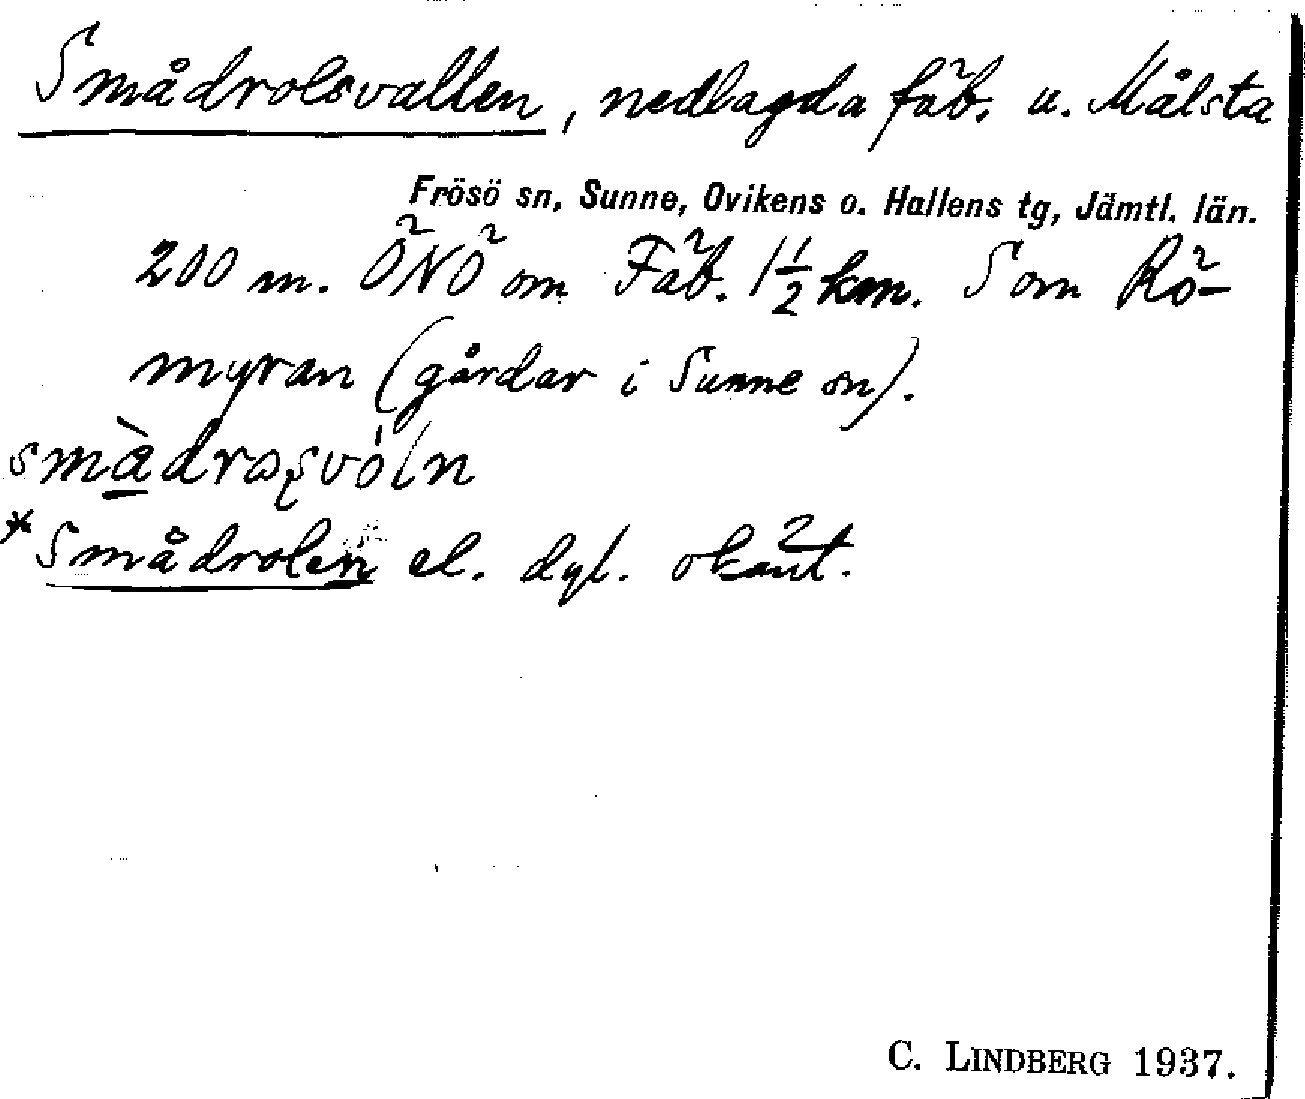 Smådrolsvallen, nedlagda fäb. u. Målsta
Frösö sn, Sunne, Ovikens o. Hallens tg, Jämtl. län.
200 m. ÖNÖ om Fäb. 1½ km. Som Rö-
myran (gårdar i Sunne sn).
*Smådrolen el. dyl. okänt.
C. LINDBERG 1937.